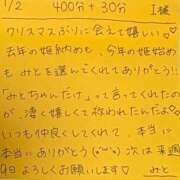 1/2 400分+30分 I様
クリスマスぶりに会えて嬉しい♡
去年の姫納めも、今年の姫始め
もみとを選んでくれてありがとう!!
「みとちゃんだけ」って言ってくれたの
が、凄く嬉しくて救われたんだよ♡
いつも仲良くしてくれて、本当に
本当にありがとう(о´∨`о) 次は来週
9日よろしくお願いします♡ みと